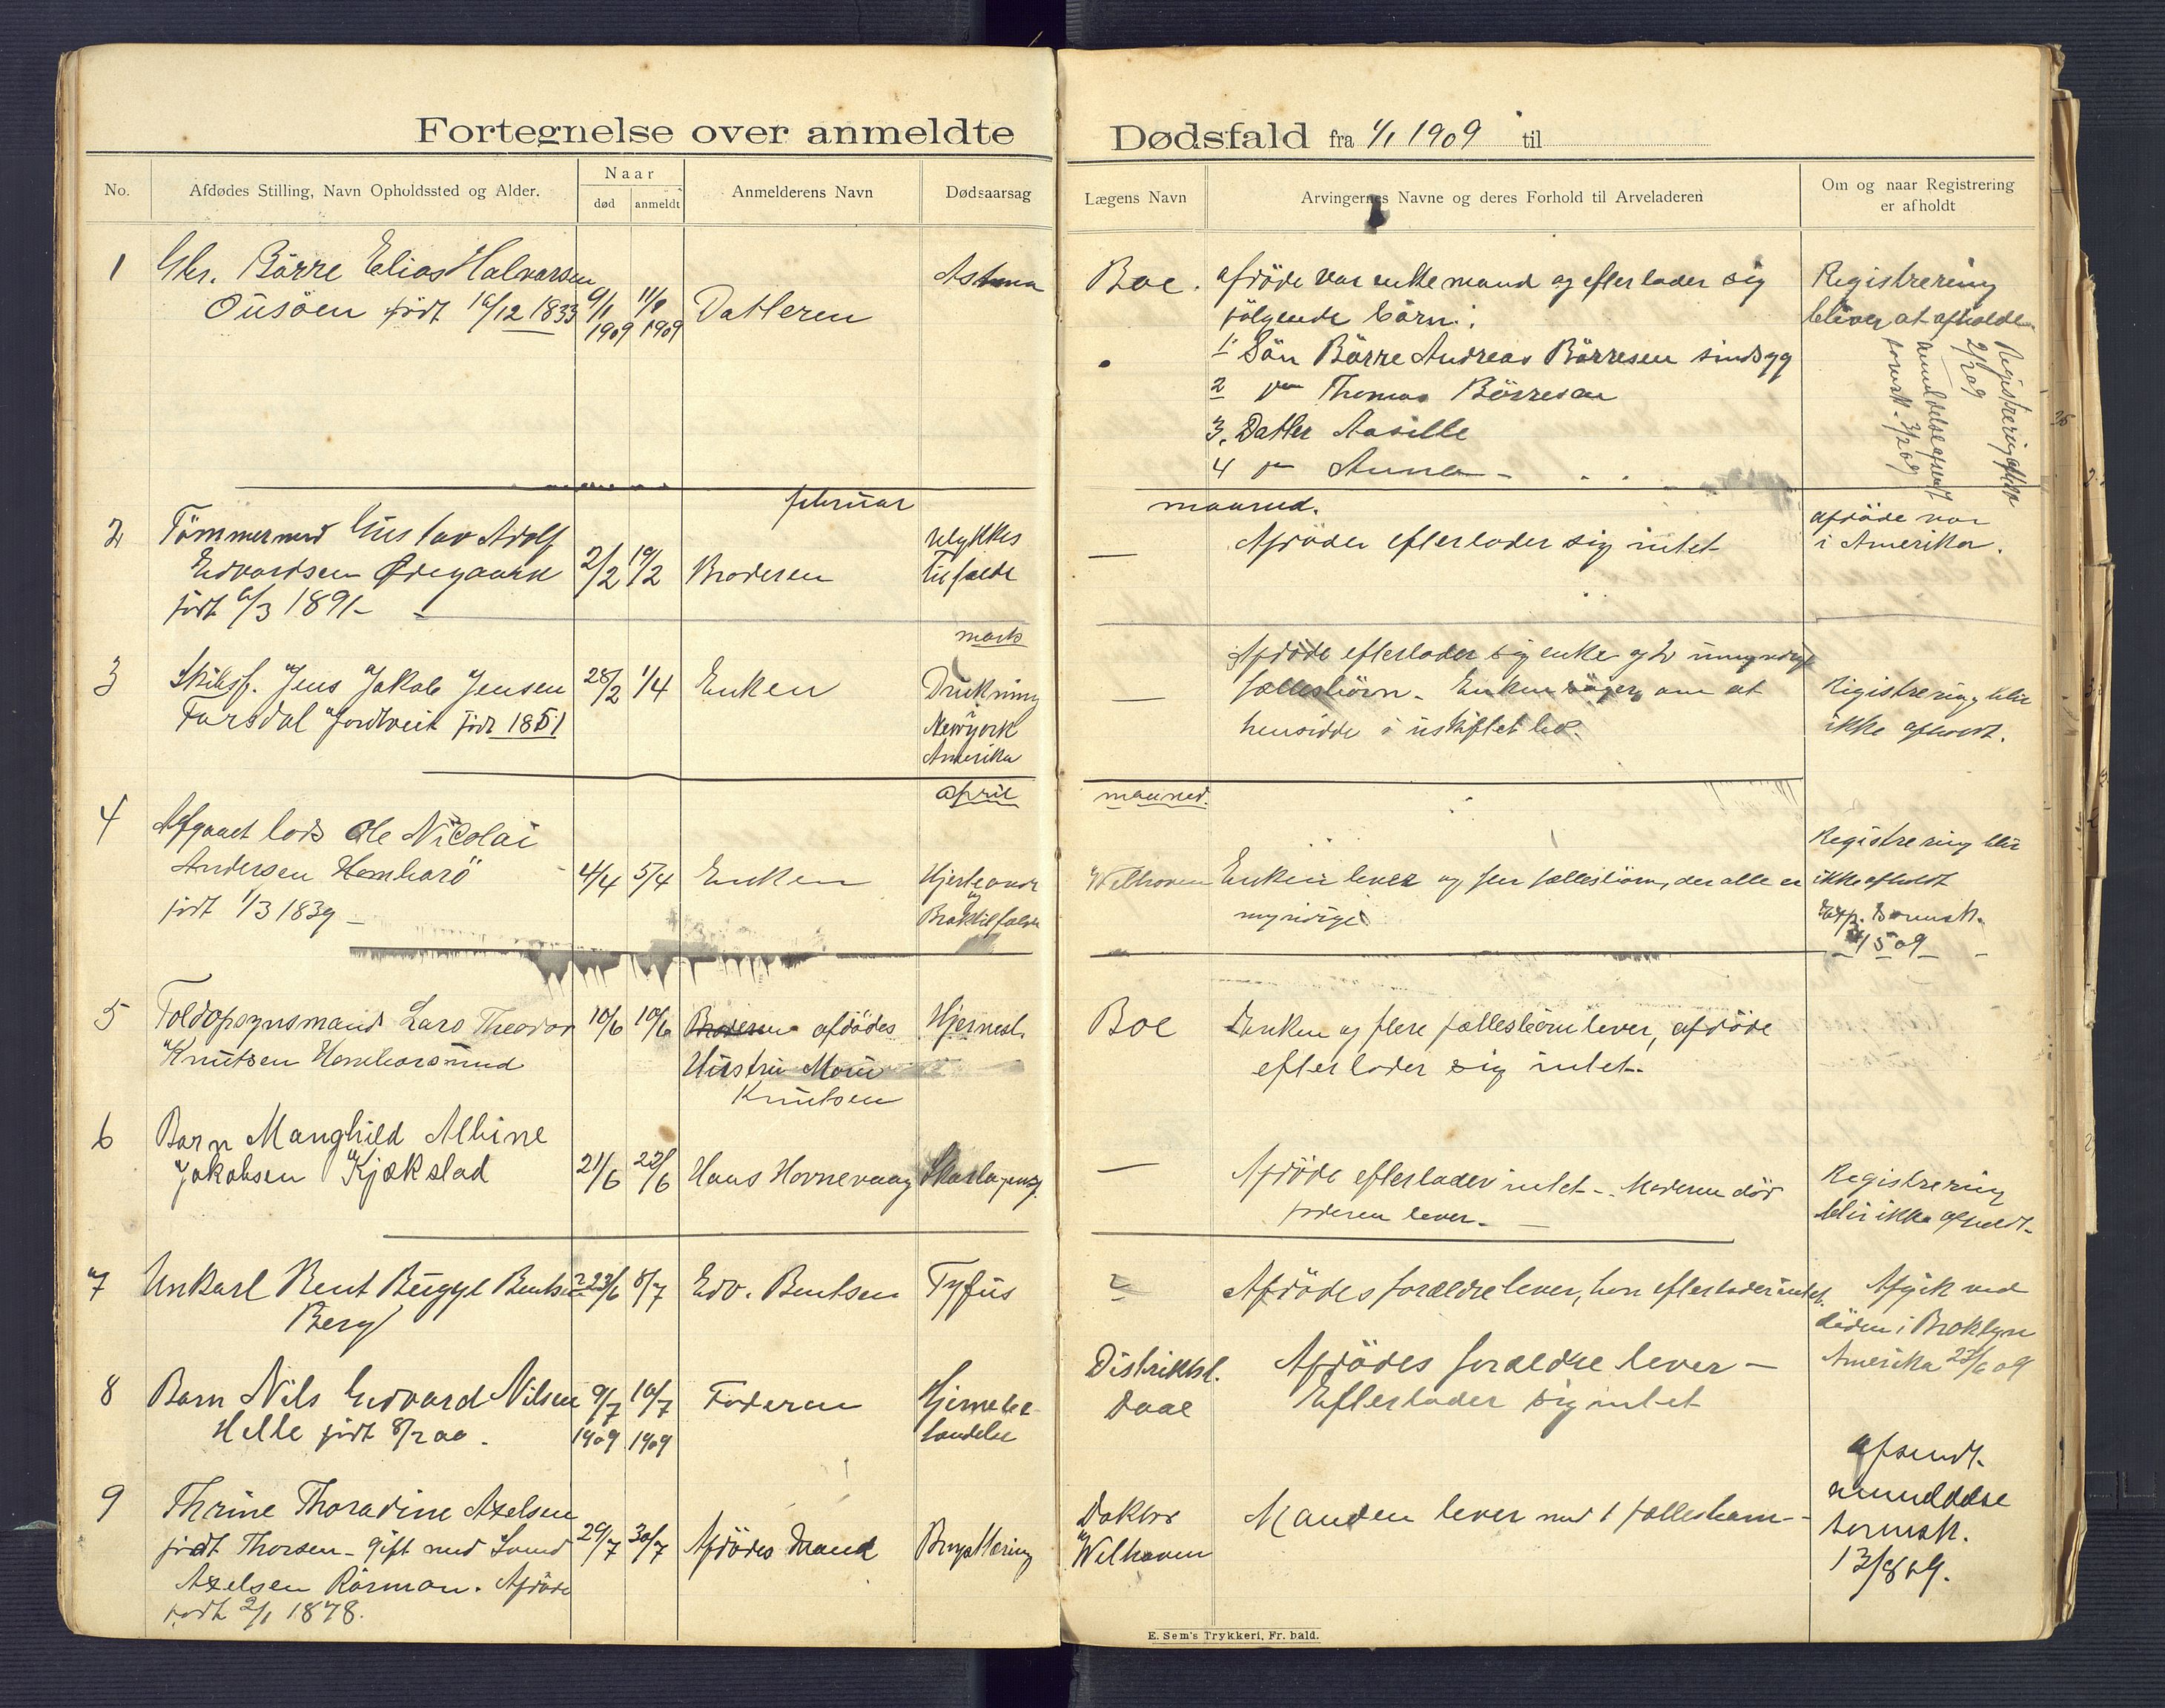 Fortegnelse over anmeldte
Dødsfald fra 1/1 1909 til
No.
Afdødes Stilling, Navn Opholdssted og Alder.
Naar
død
anmeldt
Anmelderens Navn
Dødsaarsag
Lægens Navn
Arvingernes Navne og deres Forhold til Arveladeren
Om og naar Registrering
er afholdt
1
Börre Elias Halvorsen
Ousöen födt 1833
9/1
1909
11/1
1909
Datteren
Astma
Boe.
afdöde var enkemand og efterlader sig
følgende börn:
1 Sön Börre Andreas Börresen sindsyg
2 Thomas Börresen
3. Datter Aasille
4 Anna
Registrering
bliver at afholde.
Registrering afholdt
2/2 09
anmeldelse afsendt
sorensk. 3/2 09
februar
maaned.
2
Tömmermd Gustav Adolf
Edvardsen Ødegaard
födt 6/3 1891
2/2
19/2
Broderen
ulykkes
tilfælde
—
Afdöde efterlader sig intet
afdöde var
i Amerika.
marts
3
Skibsf. Jens Jakob Jensen
Torsdal Jordtveit födt 1851
28/2
1/4
Enken
Drukning
i
Newyork
Amerika
—
Afdöde efterlader sig enke og 2 umyndige
fællesbörn. Enken söger om at
hensidde i uskiftet bo.
Registrering blir
ikke afholdt.
april
maaned.
4
Afgaaet lods Ole Nicolai
Andersen Homborö
födt 1/3 1839
4/4
5/4
Enken
Welhaven
Enken lever og fællesbörn, der alle er
myndige
Registrering blir
ikke afholdt
1/5 09
5
Toldopsynsmand Lars Theodor
Knutsen Homborsund
10/6
10/6
Broderen afdödes
Hustru
Knutsen
Hjernesl.
Boe
Enken og flere fællesbörn lever, afdöde
efterlader sig intet.
6
Barn Manghild Albine
Jakobsen Kjækstad
21/6
23/6
Hans Hornevaag
Skarlagensf.
—
Afdöde efterlader intet - Moderen död
faderen lever.
Registrering
blir ikke afholdt.
7
Unkarl Bent Bugge Bentsen
Berg
23/6
8/7
Edv. Bentsen
Tyfus
Afdödes forældre lever, han efterlader intet.
Afgik ved
döden i Broklyn
Amerika 23/6 09
8
Barn Nils Edvard Nilsen
Helle födt
9/7
1909
10/7
1909
Faderen
Hjernebe-
tændelse
Distriktsl.
Daae
Afdödes forældre lever —
Efterlader sig intet
9
Thrine Thoradine Axelsen
födt Thorsen - gift med
Axelsen Rörmon. Afdöde
födt 2/1 1878.
29/7
30/7
Afdödes Mand
Brysttæring
Doktor
Welhaven
Manden lever med 1 fællesbarn
afsendt
anmeldelse
sorensk.
13/8 09.
E. Sem's Trykkeri, Fr. hald.